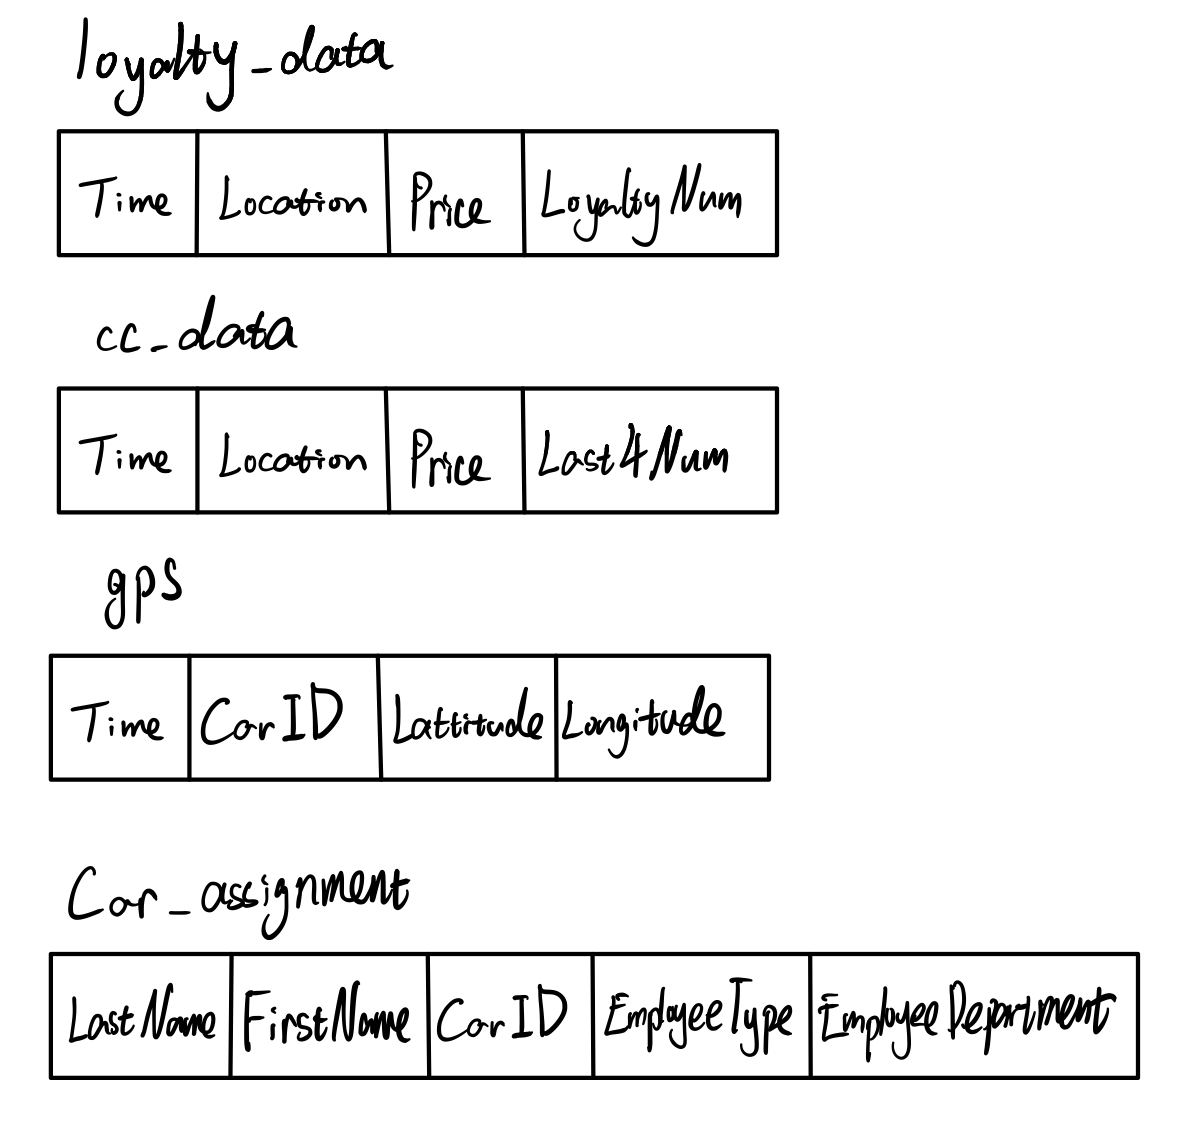 loyalty_data
Time Location Price LoyaltyNum
cc_data
Time Location Price Last4Num
gps
Time CarID Lattitude Longitude
Car_assignment
LastName FirstName CarID EmployeeType EmployeeDepartment